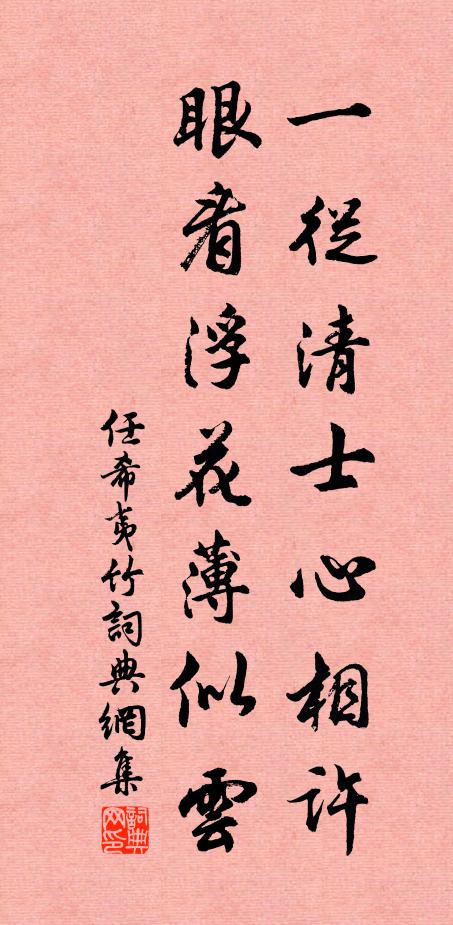 一從清士心相許
眼看浮花薄似雲
任希夷竹詞典網集
詞典網印